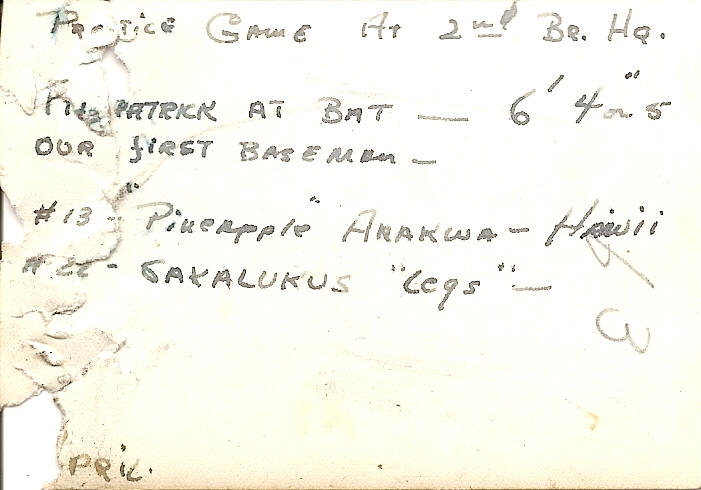 Practice GAME At 2nd Bq. Hq.
Fitzpatrick AT BAT — 6' 4" or 5
OUR first BASEMAN —
#13 - "Pineapple" ARAKWA - Hawii
#22 - SAKALUKUS "Legs" —
3
April.